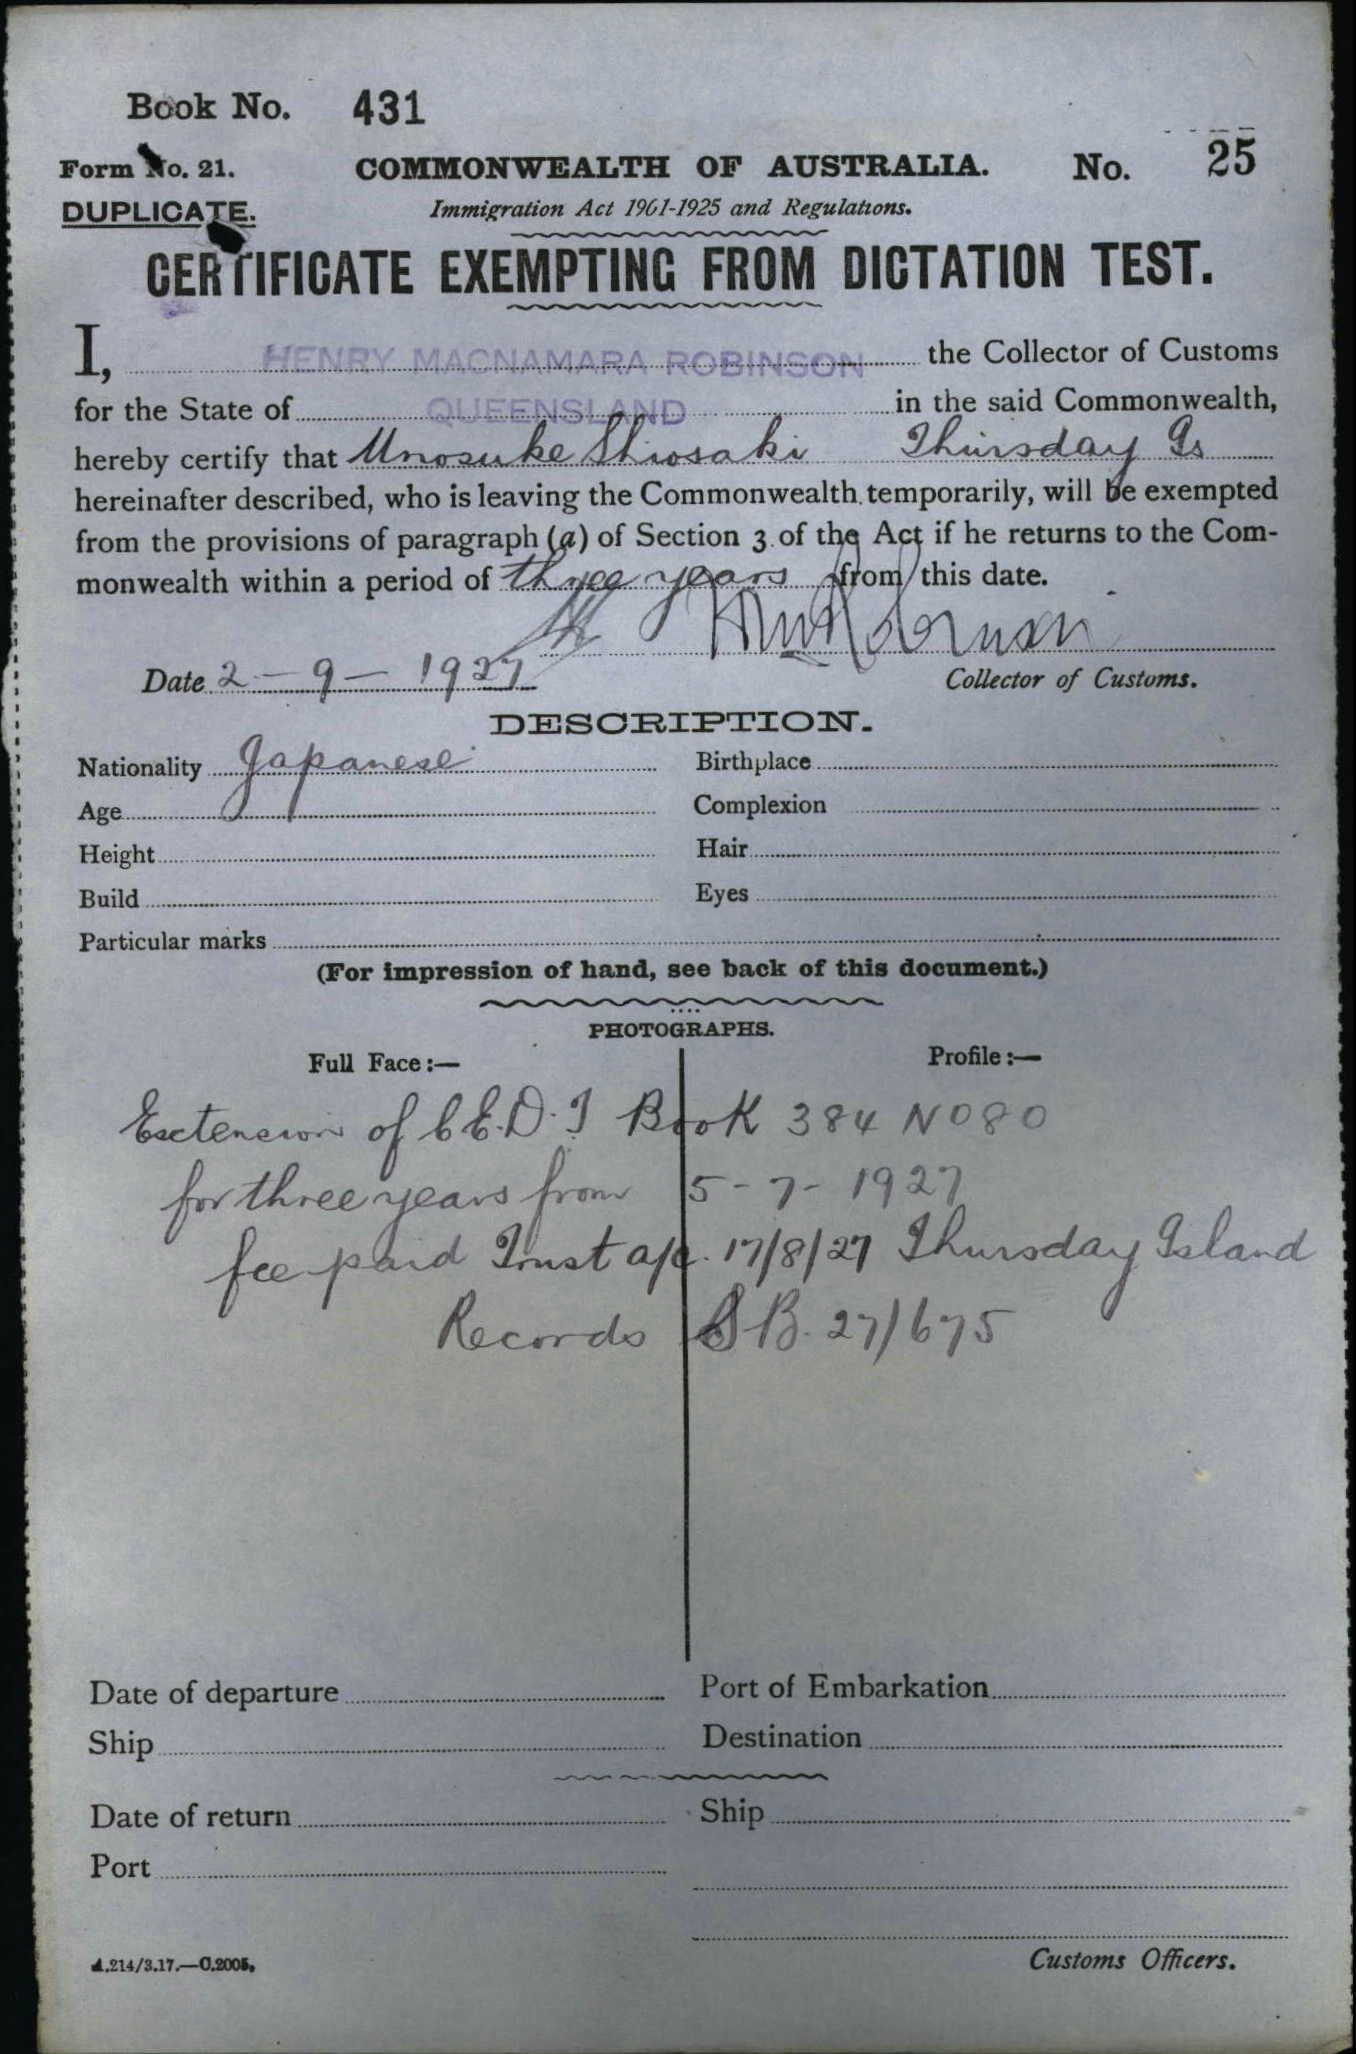 Book No. 431
Form No. 21. COMMONWEALTH OF AUSTRALIA. No. 25
DUPLICATE. Immigration Act 1901-1925 and Regulations.
CERTIFICATE EXEMPTING FROM DICTATION TEST.
I, HENRY MACNAMARA ROBINSON the Collector of Customs
for the State of QUEENSLAND in the said Commonwealth,
hereby certify that Unosuke Shiosaki Thursday Is
hereinafter described, who is leaving the Commonwealth temporarily, will be exempted
from the provisions of paragraph (a) of Section 3 of the Act if he returns to the Com-
monwealth within a period of three years from this date.
Date 2-9-1927 Collector of Customs.
DESCRIPTION.
Nationality Japanese Birthplace
Age Complexion
Height Hair
Build Eyes
Particular marks
(For impression of hand, see back of this document.)
PHOTOGRAPHS.
Full Face:— Profile:—
Extension of C.E.D.T Book 384 No 80
for three years from 5-7-1927
fee paid Trust a/c. 17/8/27 Thursday Island
Records S.B. 27/675
Date of departure Port of Embarkation
Ship Destination
Date of return Ship
Port
A.214/3.17.—C.2005. Customs Officers.